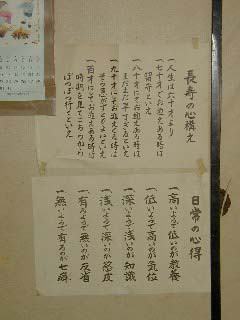 長寿の心構え
一人生は六十才より
一七十才でお迎えある時は
留守といえ
一八十才にてお迎えある時は
まだまだ早すぎるといえ
一九十才にてお迎えある時は
そう急がずともよいといえ
一百才にてお迎えある時は
時期を見てこちらから
ぼつぼつ行くといえ
日常の心得
一高いようで低いのが教養
一低いようで高いのが気位
一深いようで浅いのが知識
一浅いようで深いのが
一有るようで無いのが
一無いようで有るのが七癖